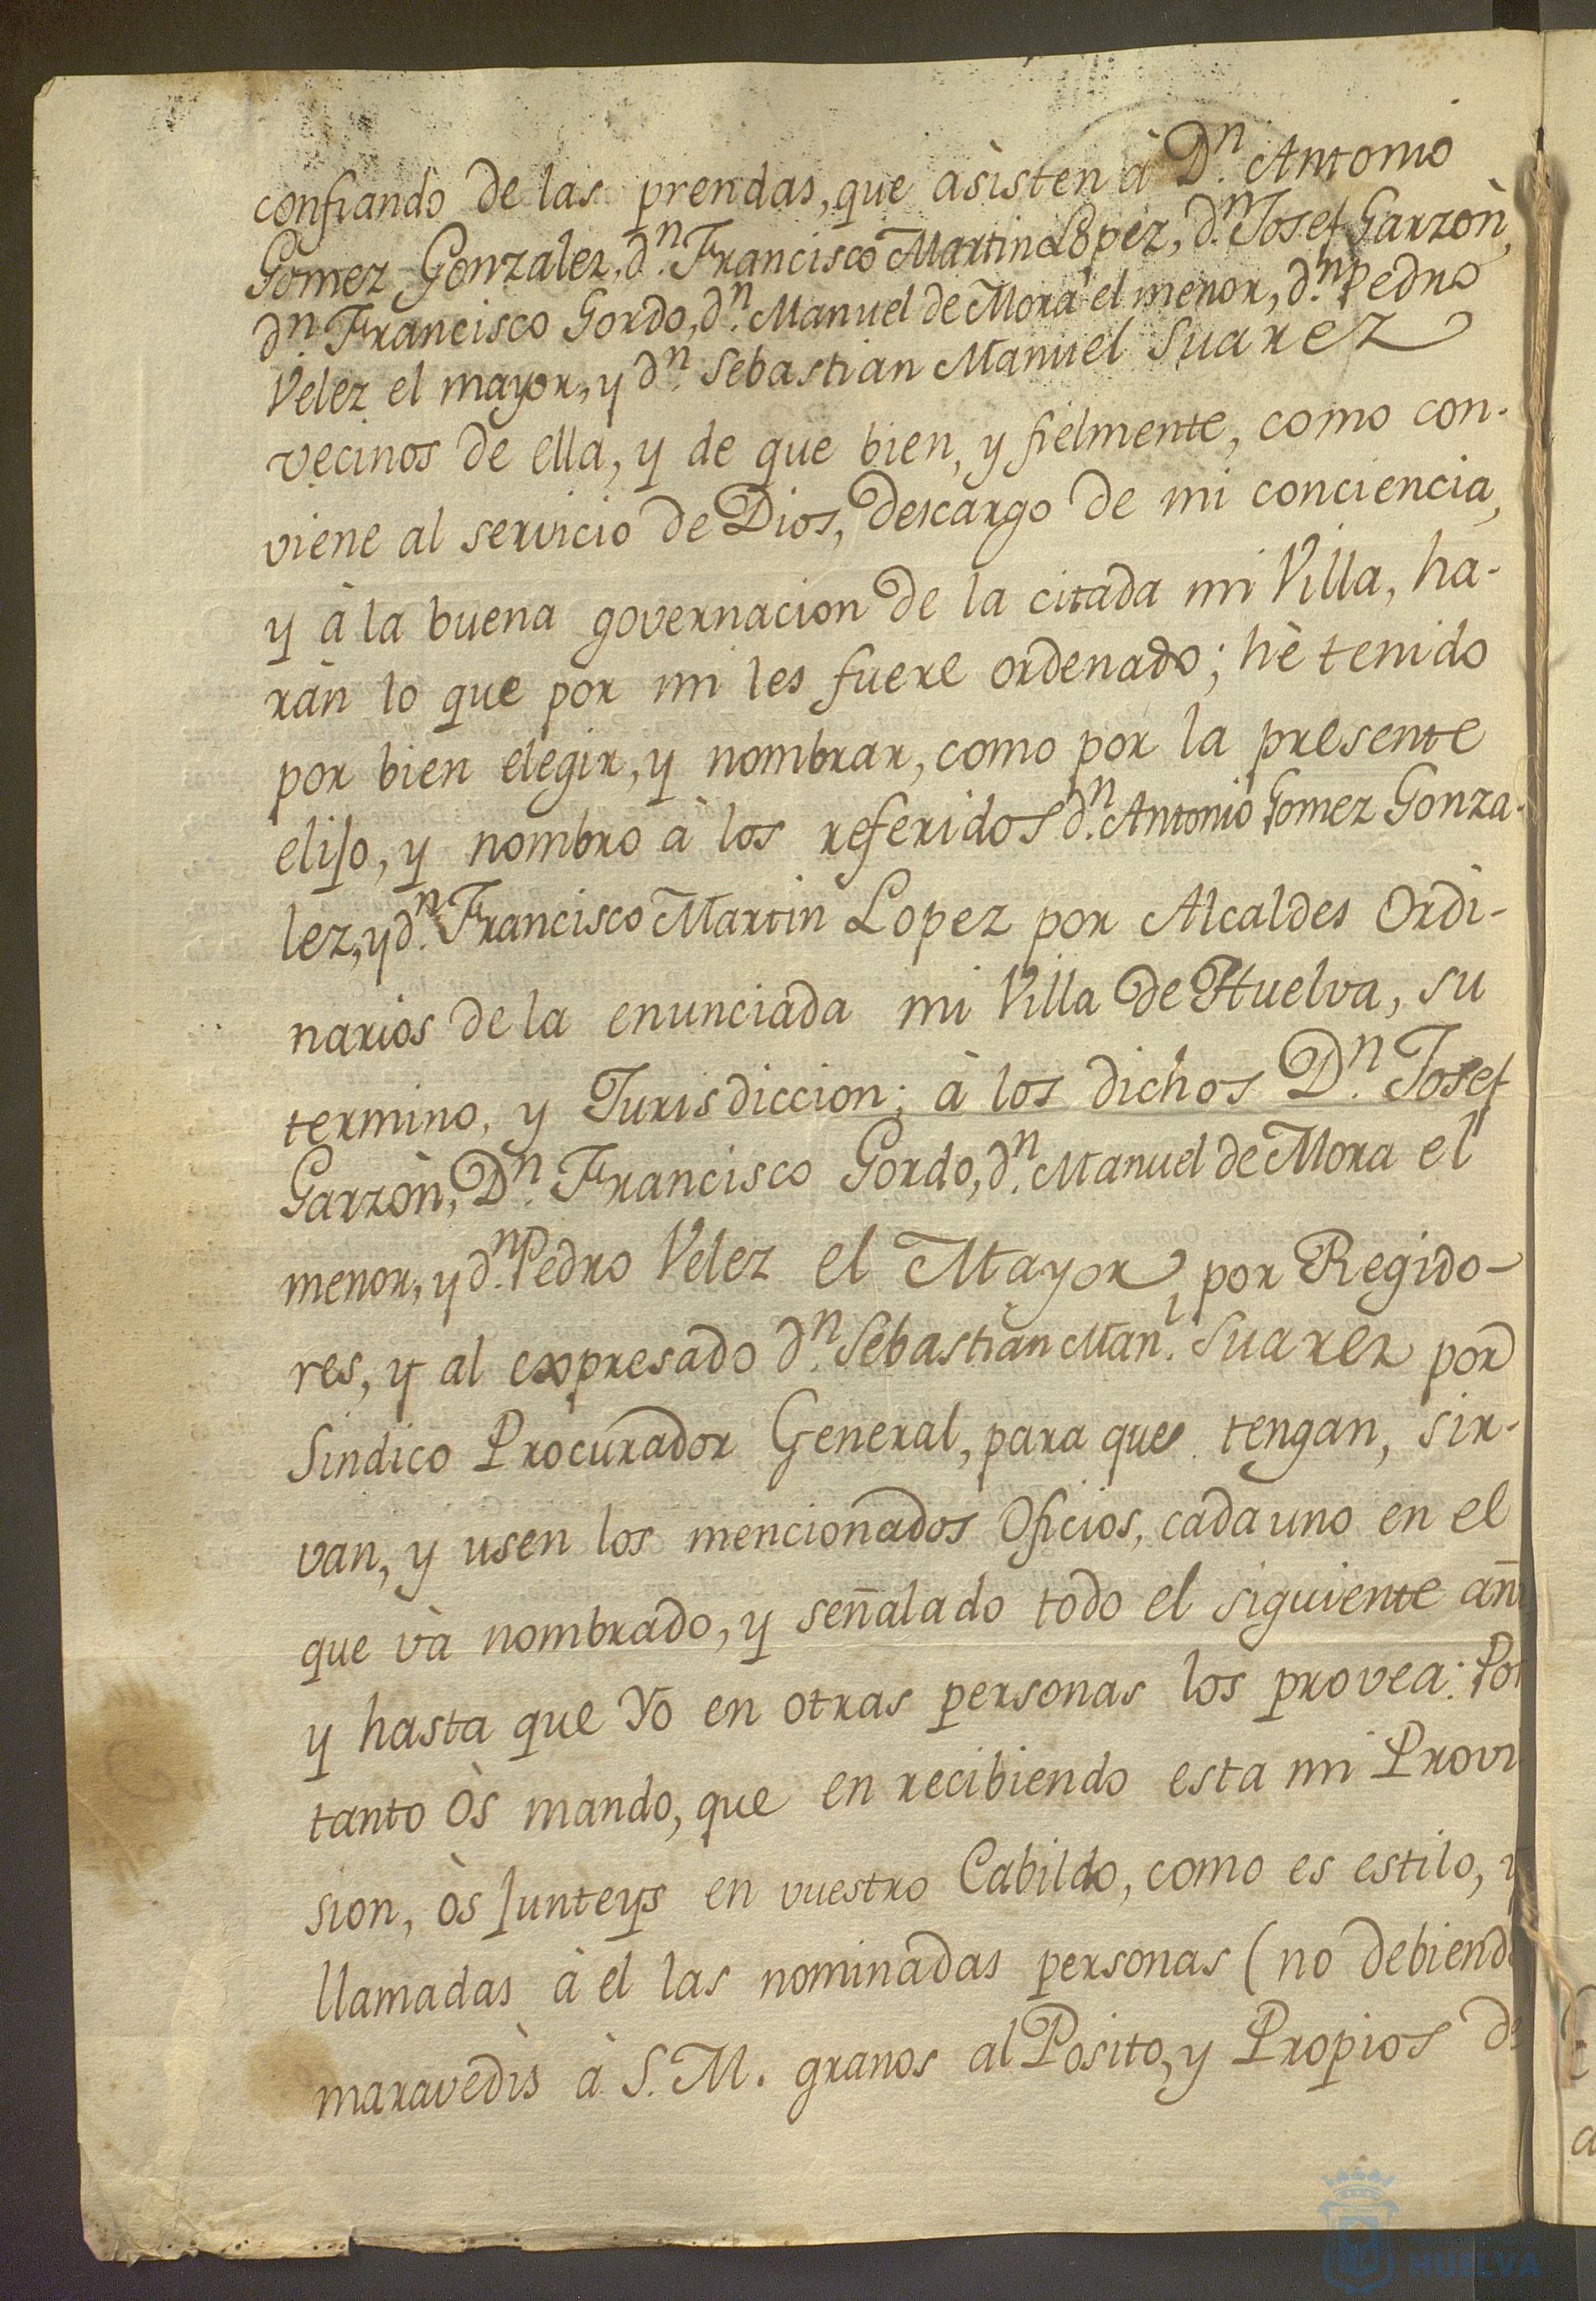 confiando de las prendas, que asisten à Dn. Antonio
Gomez Gonzalez, dn. Francisco Martin Lopez, dn. Josef Garzòn,
dn. Francisco Gordo, dn. Manuel de Mora el menor, dn. Pedro
Velez el mayor, y dn. Sebastian Manuel Suarez
vecinos de ella, y de que bien, y fielmente, como con-
viene al servicio de Dios, descargo de mi conciencia,
y à la buena governacion de la citada mi Villa, ha-
ràn lo que por mi les fuere ordenado; hè tenido
por bien elegir, y nombrar, como por la presente
elijo, y nombro à los referidos dn. Antonio Gomez Gonza-
lez, y dn. Francisco Martin Lopez por Alcaldes Ordi-
narios de la enunciada mi Villa de Huelva, su
termino, y Jurisdiccion; à los dichos Dn. Josef
Garzòn, Dn. Francisco Gordo, dn. Manuel de Mora el
menor, y dn. Pedro Velez el Mayor, por Regido-
res, y al expresado dn. Sebastian Manl. Suarez por
Sindico Procurador General, para que tengan, sir-
van, y usen los mencionados Oficios, cada uno en el
que và nombrado, y señalado todo el siguiente añ
y hasta que Yo en otras personas los provea: Por
tanto Òs mando, que en recibiendo esta mi Provi
sion, òs junteys en vuestro Cabildo, como es estilo, y
llamadas à el las nominadas personas (no debiendo
maravedìs à S. M. granos al Posito, y Propios de
HUELVA